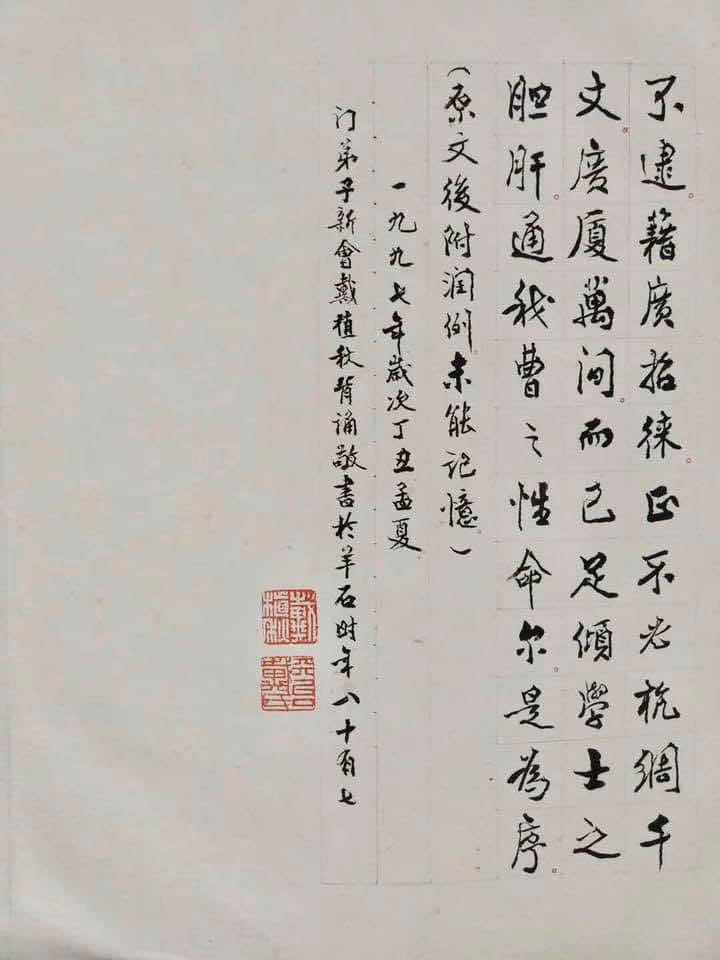 不逮。藉廣招徠。正不必杭綢千
丈。廣厦萬间。而已足傾學士之
胆肝。通我曹之性命尔。是為序。
(原文後附润例。未能记憶。)
一九九七年歲次丁丑孟夏
门弟子新會戴植秋背誦敬書於羊石时年八十有七
戴植秋